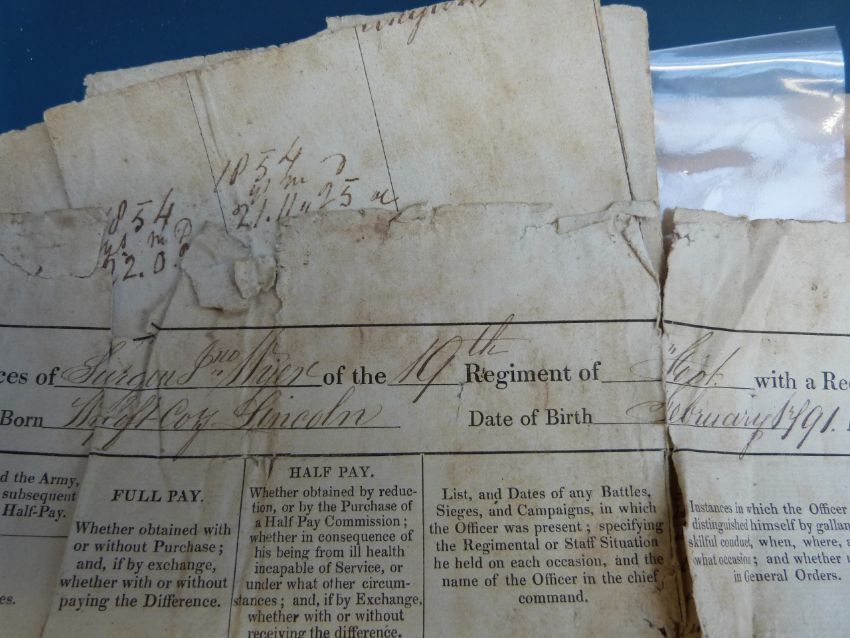 1854
ys m D
21.11.25
1854
ys m D
22.0.
ces of Surgeon Jno of the 19th Regiment of Foot with a Rec
Born Coy Lincoln Date of Birth February 1791.
d the Army,
subsequent
Half-Pay.
es.
FULL PAY.
Whether obtained with
or without Purchase;
and, if by exchange,
whether with or without
paying the Difference.
HALF PAY.
Whether obtained by reduc-
tion, or by the Purchase of
a Half Pay Commission;
whether in consequence of
his being from ill health
incapable of Service, or
under what other circum-
stances; and, if by Exchange,
whether with or without
receiving the difference.
List, and Dates of any Battles,
Sieges, and Campaigns, in which
the Officer was present; specifying
the Regimental or Staff Situation
he held on each occasion, and the
name of the Officer in the chief
command.
Instances in which the Officer
distinguished himself by gallan
skilful conduct, when, where, a
what occasion; and whether
in General Orders.